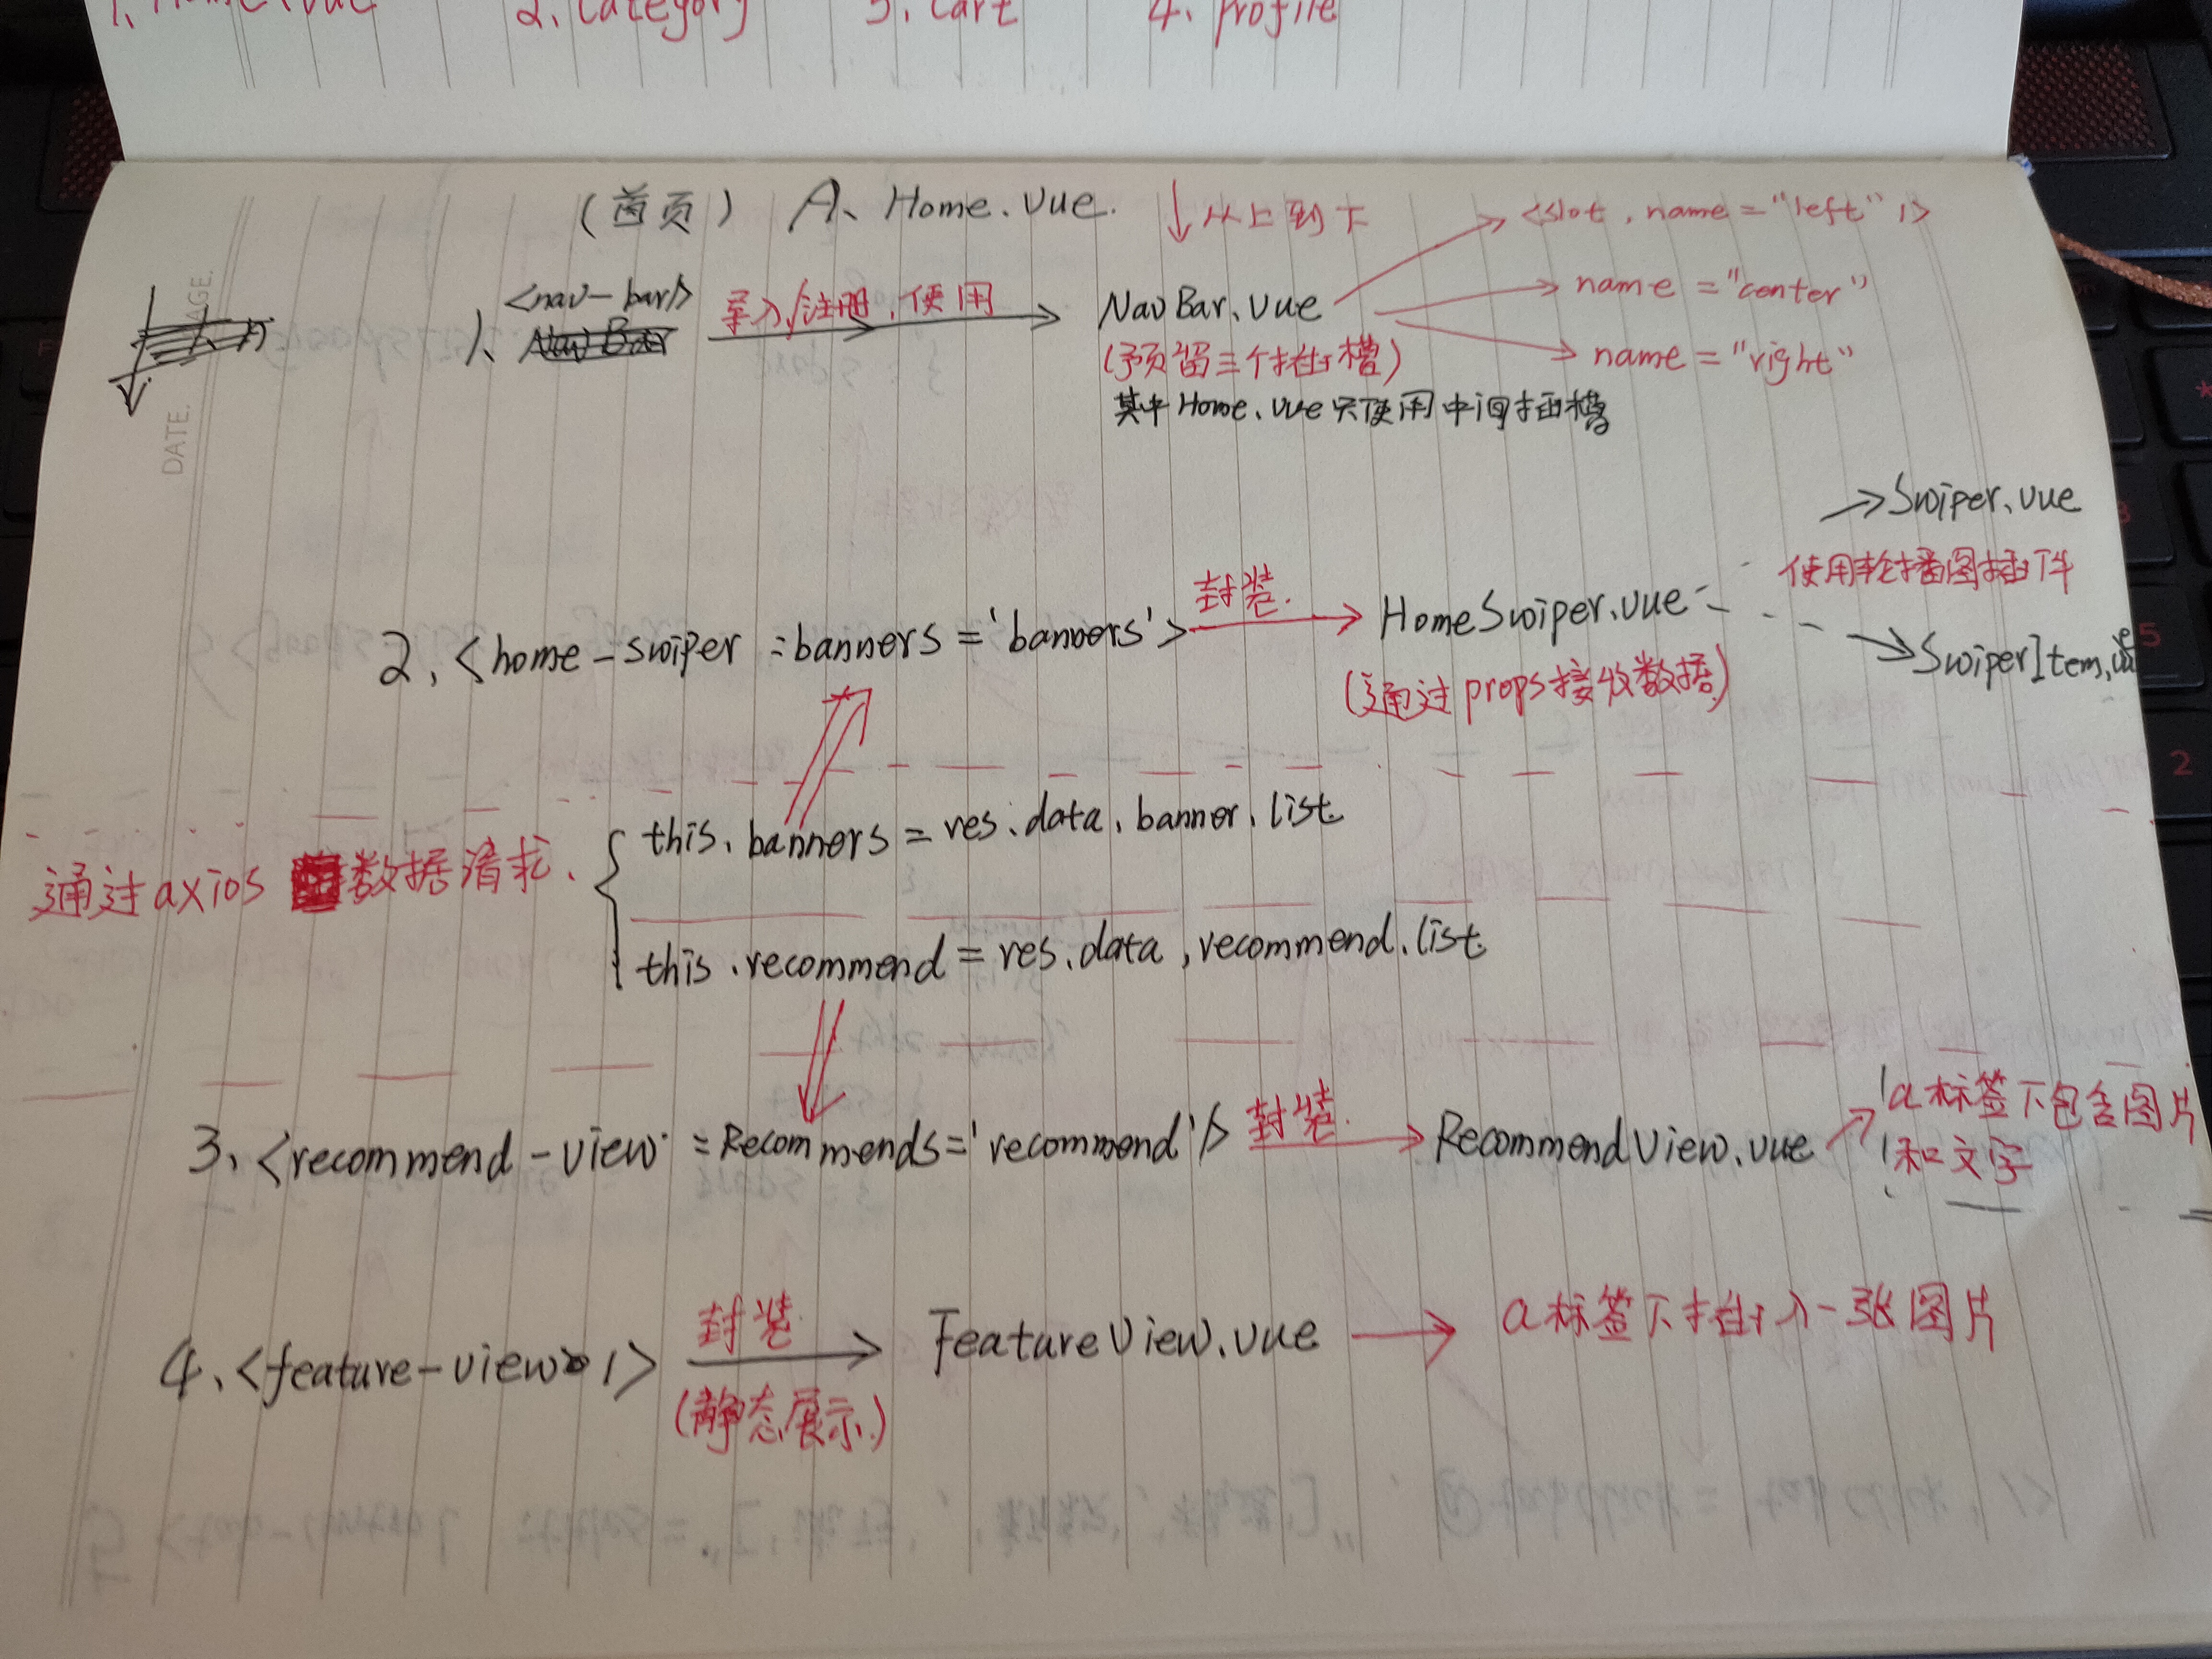 1. Home.vue 2. Category 3. Cart 4. profile
(首页) A、Home.vue. 从上到下
<slot, name="left" />
name="center"
name="right"
1、<nav-bar/> 导入/注册,使用 NavBar.vue
(预留三个插槽)
其中Home.vue只使用中间插槽
AGE.
DATE.
Swiper.vue
使用轮播图插件
SwiperItem.vue
2、<home-swiper :banners='banners'> 封装. HomeSwiper.vue
(通过props接收数据)
通过axios 数据请求.
this.banners=res.data.banner.list.
this.recommend=res.data,recommend.list.
3、<recommend-view :Recommends='recommend'/> 封装. RecommendView.vue a标签下包含图片
和文字
4、<feature-view /> 封装. FeatureView.vue a标签下插入一张图片
(静态展示)